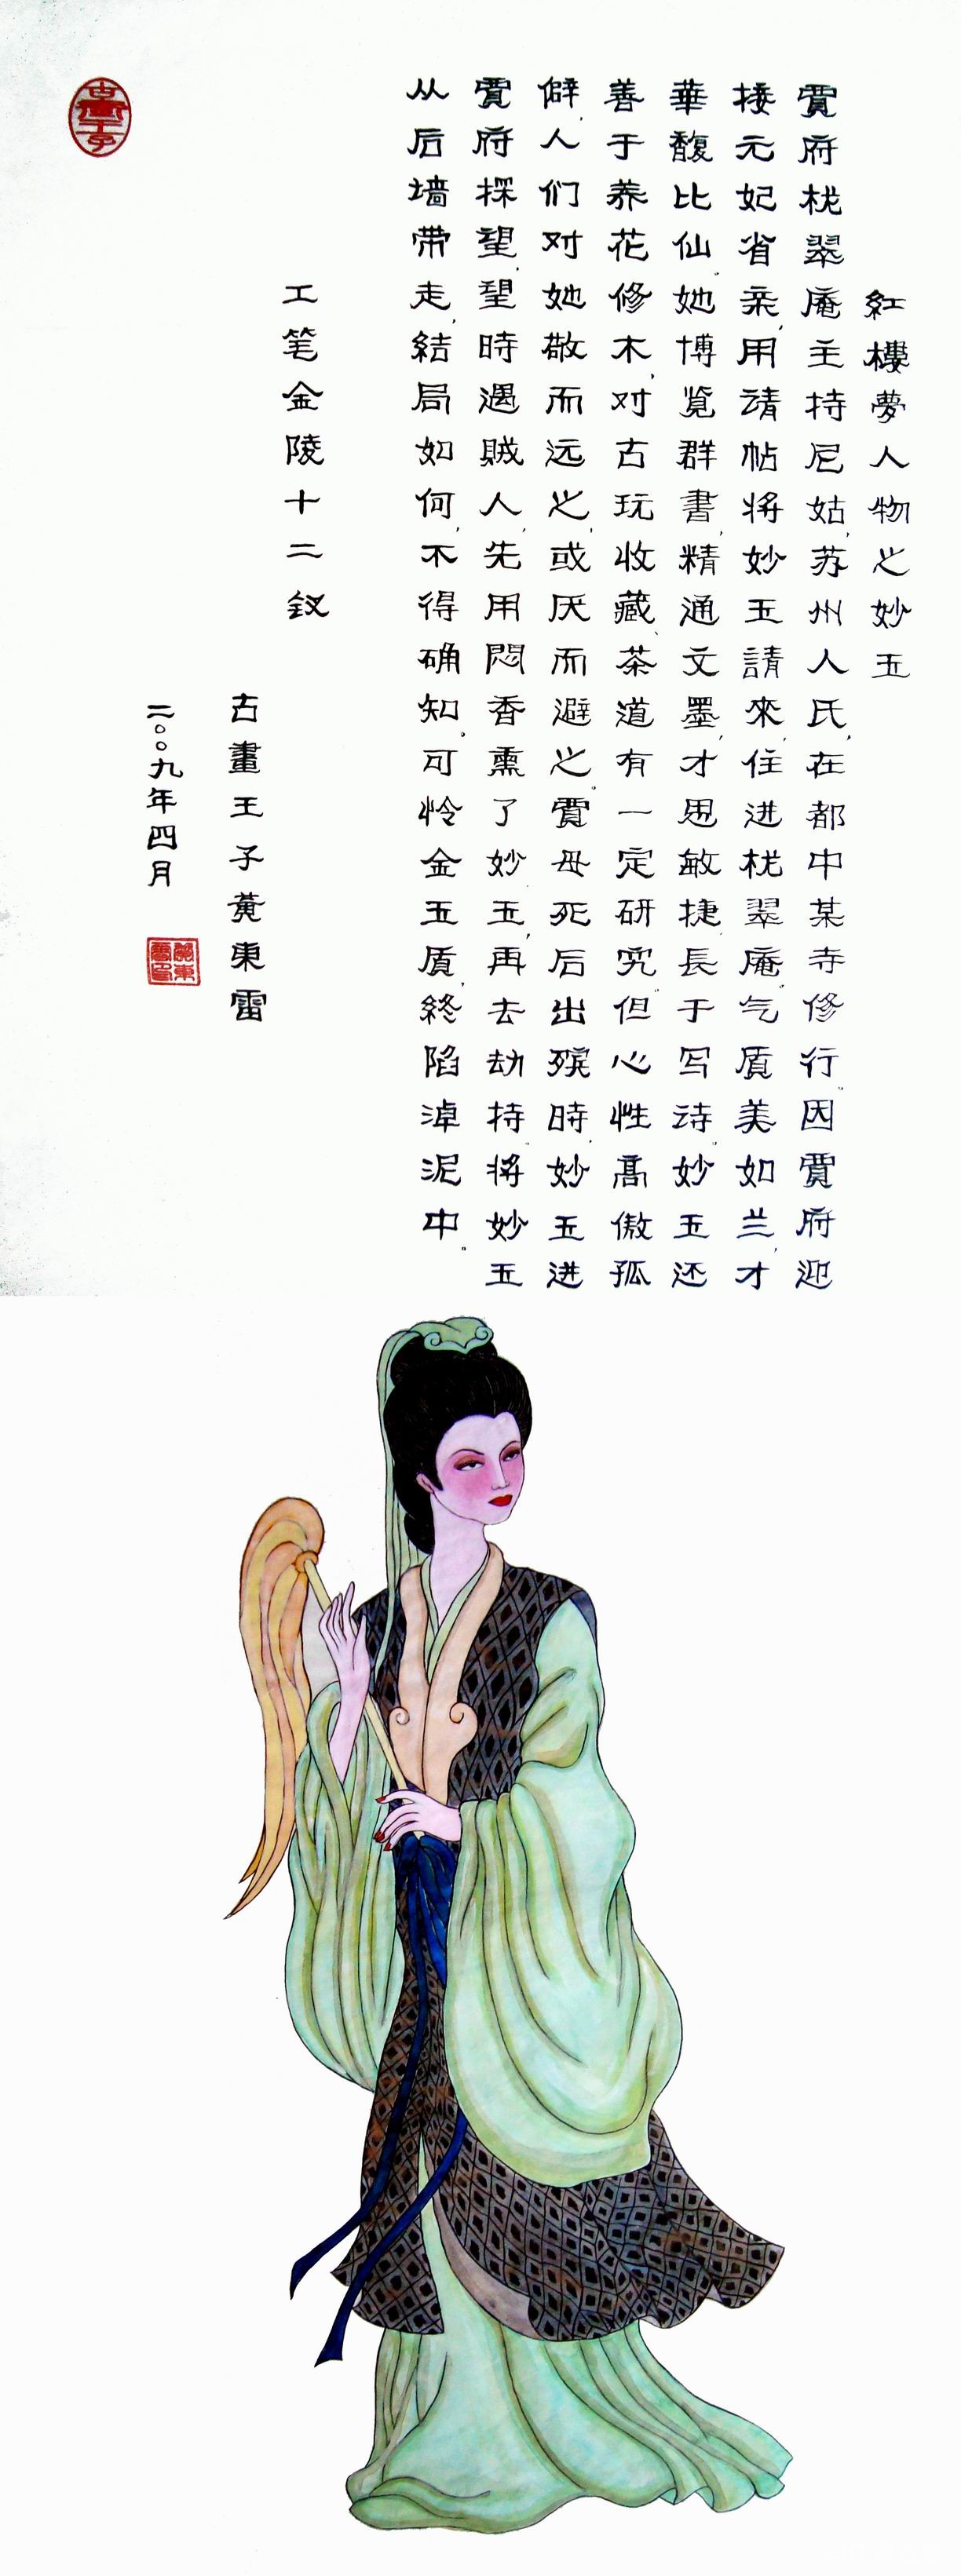 紅樓夢人物之妙玉
賈府栊翠庵主持尼姑,苏州人氏,在都中某寺修行。因賈府迎
接元妃省亲,用请帖将妙玉請來,住进栊翠庵。气质美如兰,才
華馥比仙。她博览群書,精通文墨,才思敏捷,長于写诗。妙玉还
善于养花修木,对古玩收藏、茶道有一定研究。但心性高傲孤
僻,人们对她敬而远之,或厌而避之。賈母死后出殡時,妙玉进
賈府探望,望時遇賊人,先用悶香熏了妙玉,再去劫持,将妙玉
从后墙带走,結局如何,不得确知。可怜金玉质,終陷淖泥中。
工笔金陵十二钗
古畫王子黄東雷
二〇〇九年四月